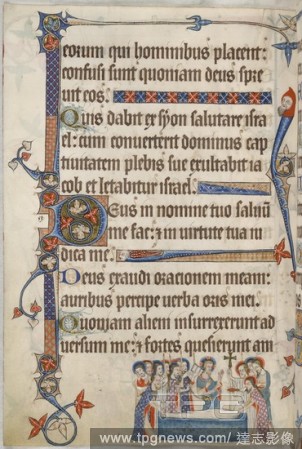 eorum qui hominibus placent:
confusi sunt quoniam deus spre
uit eos.
Quis dabit ex syon salutare isra
el: cum conuerterit dominus cap
tiuitatem plebis sue exultabit ia
cob et letabitur israel.
Deus in nomine tuo saluum
me fac: ⁊ in uirtute tua iu
dica me.
Deus exaudi orationem meam:
auribus percipe uerba oris mei.
Quoniam alieni insurrexerunt ad
uersum me: ⁊ fortes quesierunt am
TPG
www.tpgnews.com/ 達志影像